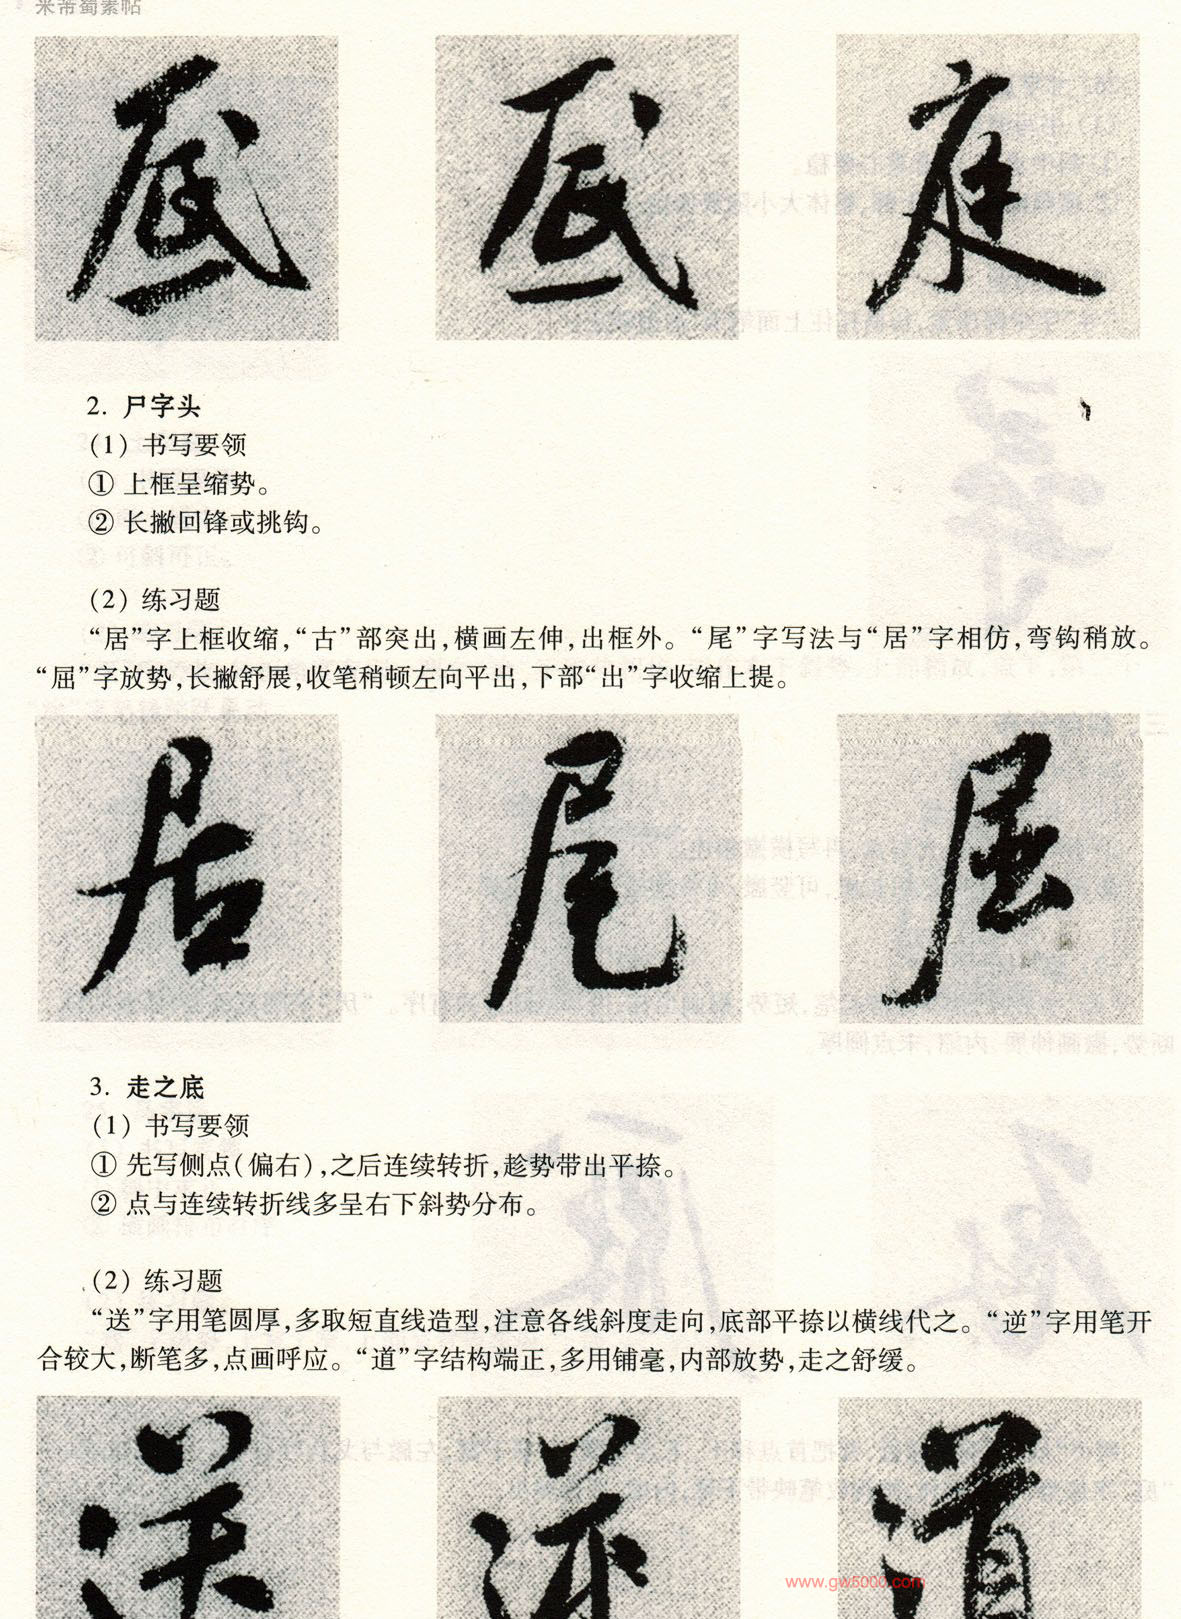 米芾蜀素帖
庭
2. 尸字头
(1) 书写要领
① 上框呈缩势。
② 长撇回锋或挑钩。
(2) 练习题
“居”字上框收缩,“古”部突出,横画左伸,出框外。“尾”字写法与“居”字相仿,弯钩稍放。
“屈”字放势,长撇舒展,收笔稍顿左向平出,下部“出”字收缩上提。
居 尾 屈
3. 走之底
(1) 书写要领
① 先写侧点(偏右),之后连续转折,趁势带出平捺。
② 点与连续转折线多呈右下斜势分布。
(2) 练习题
“送”字用笔圆厚,多取短直线造型,注意各线斜度走向,底部平捺以横线代之。“逆”字用笔开
合较大,断笔多,点画呼应。“道”字结构端正,多用铺毫,内部放势,走之舒缓。
送 逆 道
www.gw5000.com